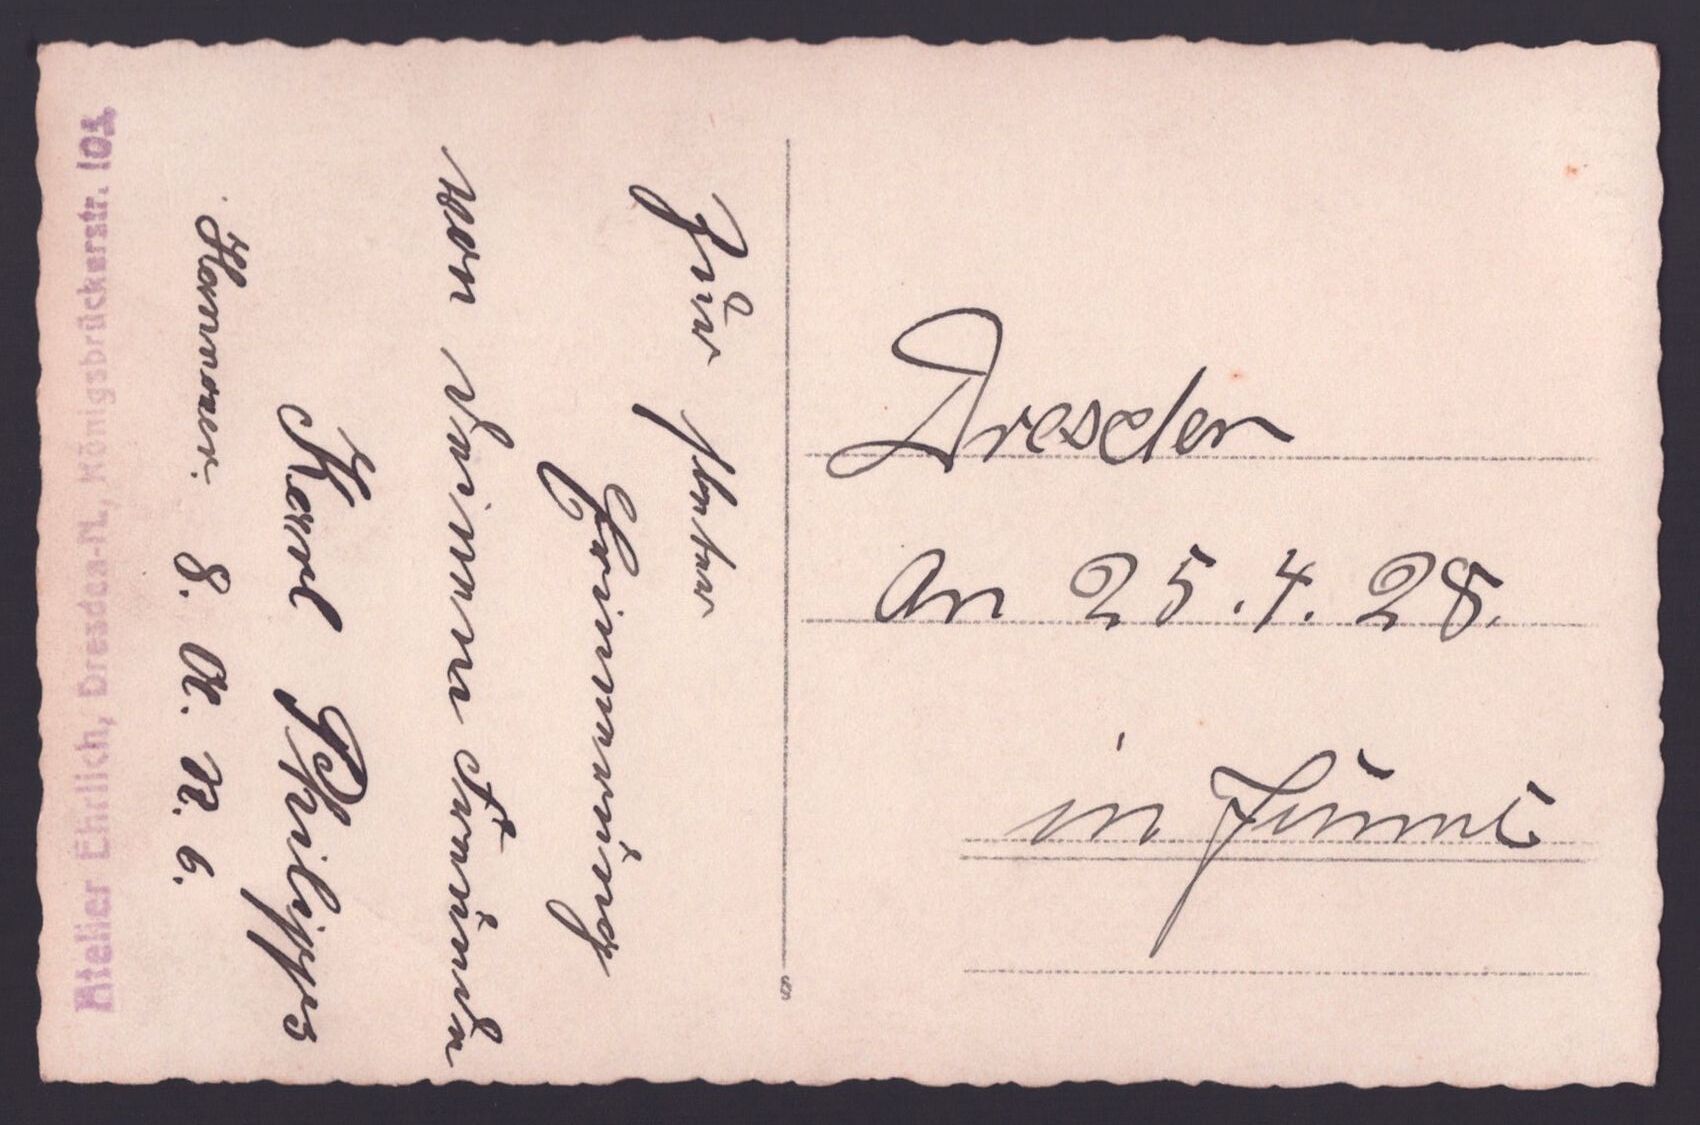 Zur steten
Erinnerung
von deinem Freunde
Karl Philipps
Kanonier. 8. A. R. 6.
Atelier Ehrlich, Dresden-N., Königsbrückerstr. 101
Dresden
An 25.4.28.
in
S